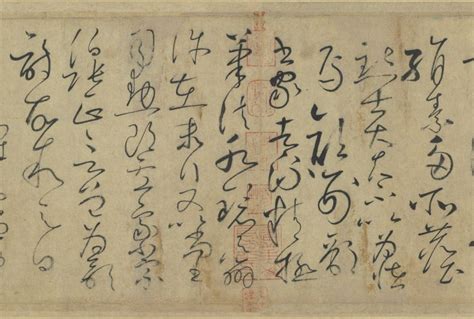 絹素多所塵
點士大夫不以為怪
焉顏刑部
書家者流精極
筆法水鏡之辨
許在末行又以尚書
司勳郎盧象小宗
伯張正言曾為歌
詩故敘之曰